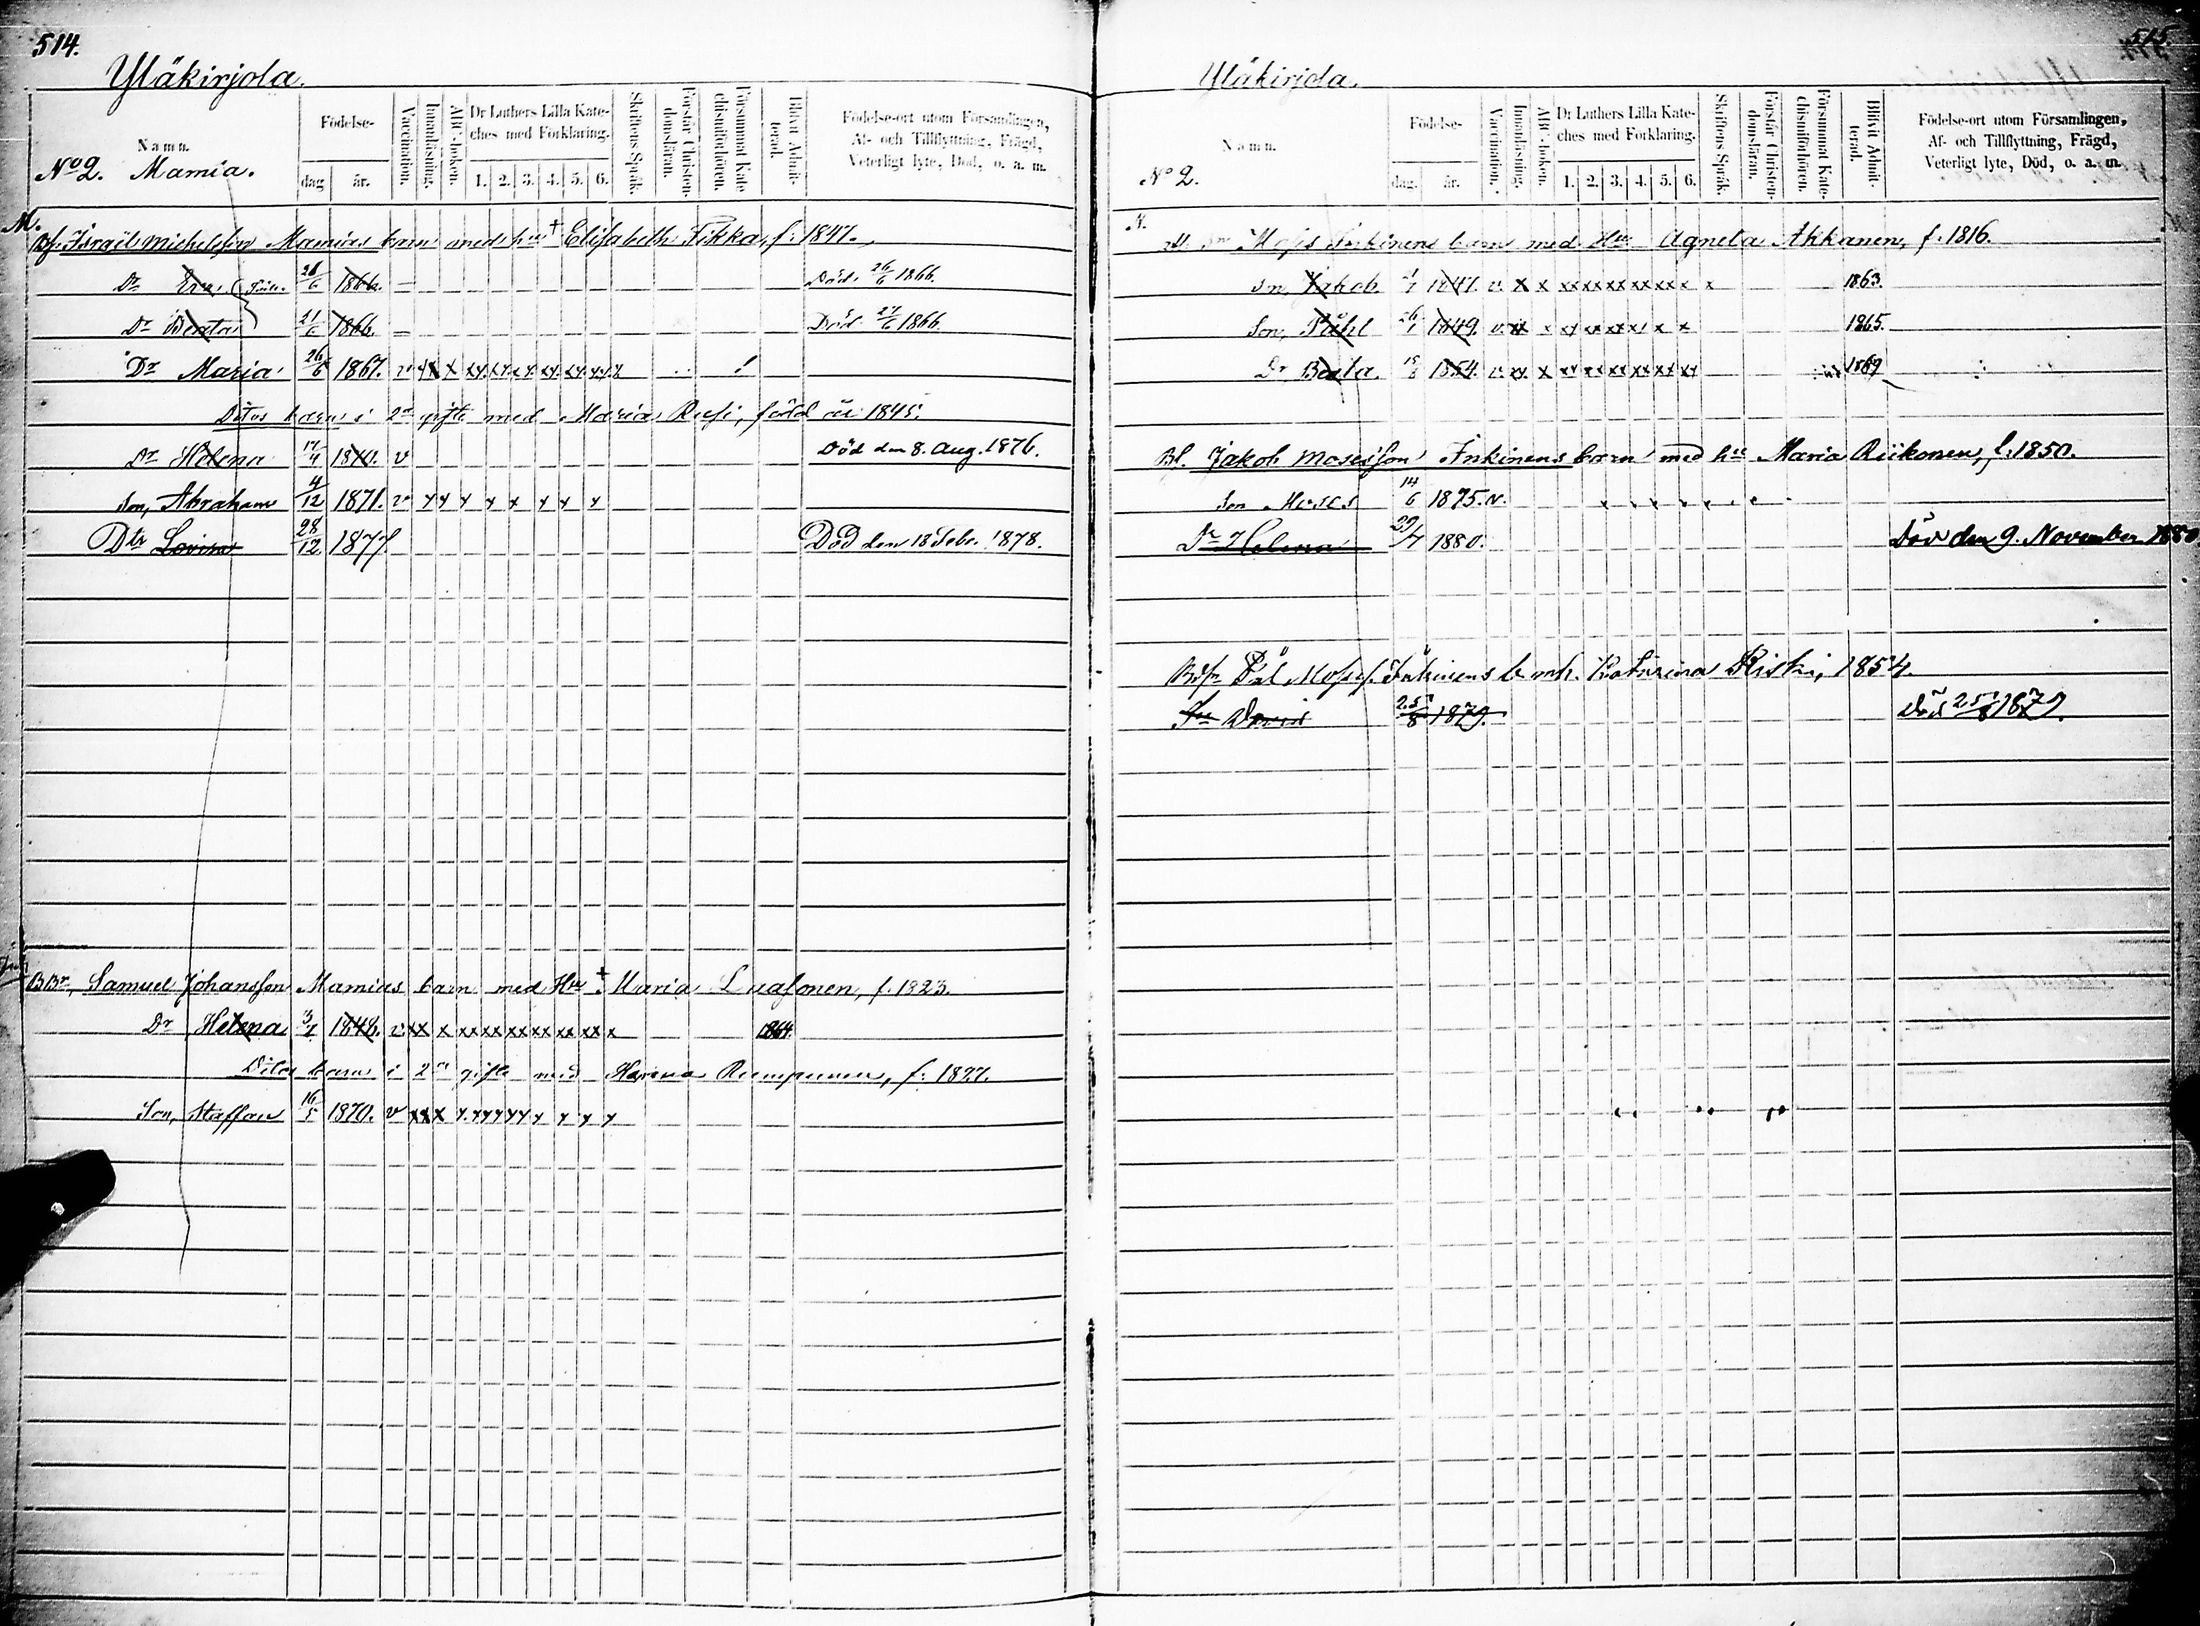 514.
Yläkirjola.
Namn.
Födelse-
dag
år.
Vaccination.
Innanläsning.
ABC-boken.
Dr Luthers Lilla Kate-
ches med Förklaring.
1. 2. 3. 4. 5. 6.
Skriftens Språk.
Förstår Christen-
domsläran.
Försummat Kate-
chismiförhören.
Blivit Admit-
terad.
Födelse-ort utom Församlingen,
Af- och Tillflyttning, Frägd,
Veterligt lyte, Död, o. a. m.
No 2. Mamia.
M.
Bf. Israël Michelsson Mamias barn med hu † Elisabeth Sikka, f. 1847.
Dr Eva 21/6 1866. — Död. 26/6 1866.
Dr Beata 21/6 1866. — Död 27/6 1866.
Dr Maria 26/6 1867. v
Ditos barn i 2a gifte med Maria Rusi, född år 1845.
Dr Helena 17/4 1870. v Död den 8. Aug. 1876.
Son, Abraham 4/12 1871. v x x x x x x x x
Dtr Lovisa 28/12 1877. Död den 18 Febr. 1878.
BBr, Samuel Johansson Mamias barn med Hu † Maria Luasonen, f. 1823.
Dr Helena 3/1 1848. v xx x xx xx xx xx xx xx x 1864.
Ditos barn i 2a gifte med Helena, f. 1827.
Son, Staffan 16/5 1870. v
515.
Yläkirjola.
Namn.
Födelse-
dag.
år.
Vaccination.
Innanläsning.
ABC-boken.
Dr Luthers Lilla Kate-
ches med Förklaring.
1. 2. 3. 4. 5. 6.
Skriftens Språk.
Förstår Christen-
domsläran.
Försummat Kate-
chismiförhören.
Blivit Admit-
terad.
Födelse-ort utom Församlingen,
Af- och Tillflyttning, Frägd,
Veterligt lyte, Död, o. a. m.
No 2.
Moses Inkinens barn med Hu Agneta Ahkanen, f. 1816.
Son, Jakob. 1847. v. x x xx xx xx xx xx x x 1863.
Son, Påhl 26/1 1849. v. xx x xx xx xx xx x x 1865.
Dr Beata. 1854. v. xx x xx xx xx xx xx xx 1869
Bl. Jakob Mosesson Inkinens barn med hu Maria Riikonen, f. 1850.
Son Moses 14/6 1875. v.
Dr Helena 29/7 1880. Död den 9. November 1880.
Pål Moses. Inkinens b. m h. Katarina Riski, 1854.
Son 25/8 1879. Död 25/8 1879.